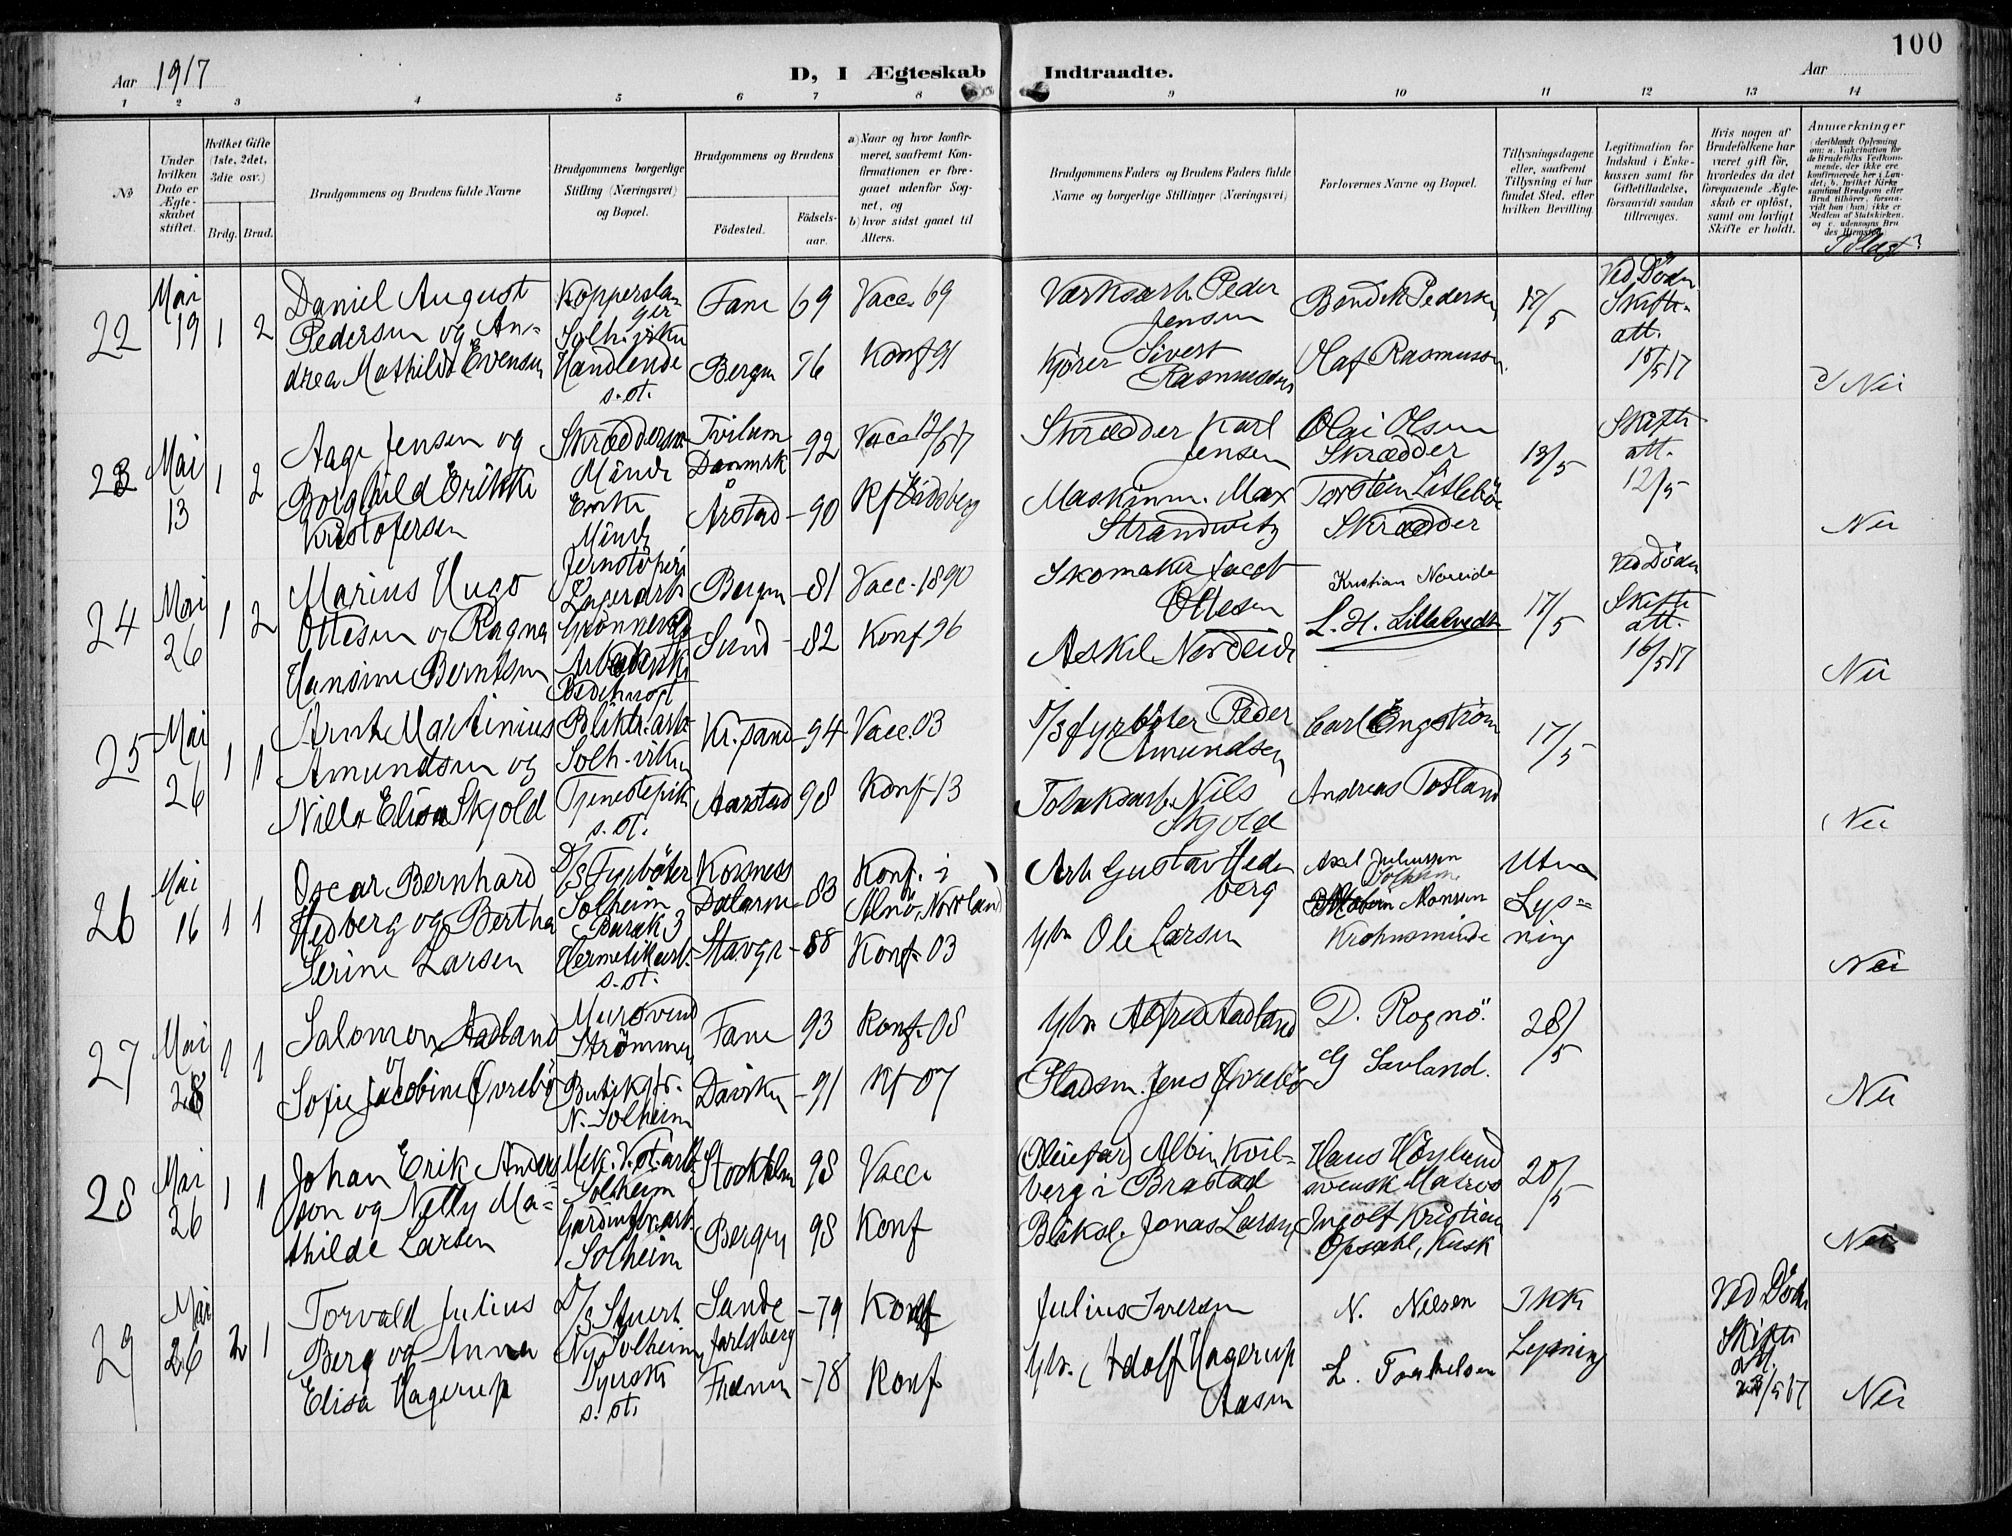 100
Aar 1917
D, I Ægteskab Indtraadte.
Aar
1 2 3 4 5 6 7 8 9 10 11 12 13 14
No
Under hvilken Dato er Ægteskabet stiftet.
Hvilket Gifte (1ste, 2det, 3die osv.)
Brdg. Brud.
Brudgommens og Brudens fulde Navne
Brudgommens borgerlige Stilling (Næringsvei) og Bopæl.
Brudgommens og Brudens
Fødested.
Fødselsaar.
a) Naar og hvor konfirmeret, saafremt Konfirmationen er foregaaet udenfor Sognet, og
b) hvor sidst gaaet til Alters.
Brudgommens Faders og Brudens Faders fulde Navne og borgerlige Stillinger (Næringsvei)
Forlovernes Navne og Bopæl.
Tillysningsdagene eller, saafremt Tillysning ei har fundet Sted, efter hvilken Bevilling.
Legitimation for Indskud i Enkekassen samt for Giftetilladelse, forsaavidt saadan tiltrænges.
Hvis nogen af Brudefolkene har været gift før, hvorledes da det foregaaende Ægteskab er opløst, samt om lovligt Skifte er holdt.
Anmærkninger
22 Mai 19 1 2
Daniel August
Pedersen og An-
drea Mathilde Evensen
Kopperslager
Handlende
s. st.
Fane 69 Vacc. 69
Bergen 76 Konf 91
Værksarb. Peder
Jensen
Kjører Sivert
Rasmussen
Bendik Pedersen
Olaf Rasmussen
17/5
Ved Døden
Skifte-
att.
15/5 17
Nei
23 Mai 13 1 2
Aage Jensen og
Borghild Erikke
Kristofersen
Minde
Enke
Minde
Tvilum
Danmark 92 Vacc 12/5 17
Årstad - 90
Skrædder Karl
Jensen
Maskinm. Max
Strandwitz
Olai Olsen
Skrædder
Torstein Litlebø
Skrædder
13/5
Skifte
att.
12/5
Nei
24 Mai 26 1 2
Marius Hugo
Ottesen og Ragna
Hansine Berntsen
Bergen - 81 Vacc. 1890
Sund - 82 Konf 96
Skomaker Jacob
Ottesen
Askel Nordeide
Kristian Noreide
17/5
Ved Døden
Skifte
att.
16/5 17
Nei
25 Mai 26 1 1
Arnt Martinius
Amundsen og
Nilla Elisa Skjold
Solh. viken
Tjenestepik
s. st.
Kr.sand - 94 Vacc. 03
Aarstad 98 Konf 13
D/S fyrbøter Peder
Amundsen
Nils
Skjold
Carl Engstrøm
Andreas Totland
17/5
Nei
26 Mai 16 1 1
Oscar Bernhard
Hedberg og Bertha
Serine Larsen
D/S Fyrbøter
Solheim
Barak 3
Hermetikarb.
s. st.
Dalarne - 83 Konf. i
Alnö, Norrland
Stavgr - 88 Konf 03
Arb Gustav Hed
berg
Gbr Ole Larsen
Axel Juliussen
Solheim
Monsen
Krohnsminde
Uten
Lys-
ning
Nei
27 Mai 28 1 1
Salomon Aadland
og
Sofie Jacobine Øvrebø
Murersvend
Strømmen
N. Solheim
Fane 93 Konf. 08
Daviken - 91 Kf 07
Gbr Alfred Aadland
Pladsm. Jens Øvrebø
D. Rognø.
G Savland.
28/5
Nei
28 Mai 26 1 1
Johan Erik Anders
son og Nelly Ma-
thilde Larsen
Mek. V.st. arb.
Solheim
Solheim
Stockholm 98 Vacc.
Bergen 98 Konf
Albin Kvil-
berg i Brastad
Bliksl. Jonas Larsen
Hans Höylund
svensk Matros
Ingolf Kristian
Opsahl, Kusk
20/5
Nei
29 Mai 26 2 1
Torvald Julius
Berg og Anna
Elisa Hagerup
D/S Stuert
Ny Solheim
s. st.
Sande
Jarlsberg - 79 Konf
- 78 Konf
Julius Iversen
Gbr. Adolf Hagerup
Aasen
N. Nilsen
L. Torkelsen
Ikke
Lysning
Ved Døden
Skifte
att.
Nei